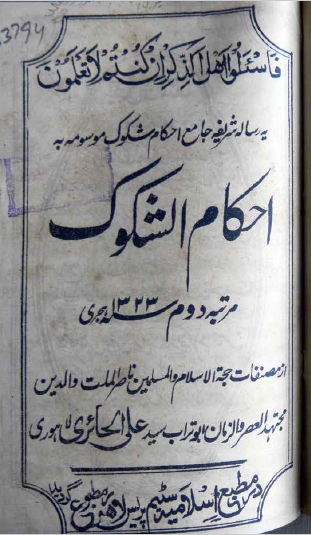 3794
فاسئلوا اهل الذکر ان کنتم لا تعلمون
یہ رسالہ شریفہ جامع احکام شکوک موسومہ بہ
احکام الشکوک
مرتبہ دوم سنہ ۱۳۲۳ ہجری
از مصنفات حجۃ الاسلام والمسلمین ناصر الملت والدین
مجتہد العصر والزمان ابوتراب سید علی الحائری لاہوری
در مطبع اسلامیہ سٹیم پریس لاہور مطبوع گردید